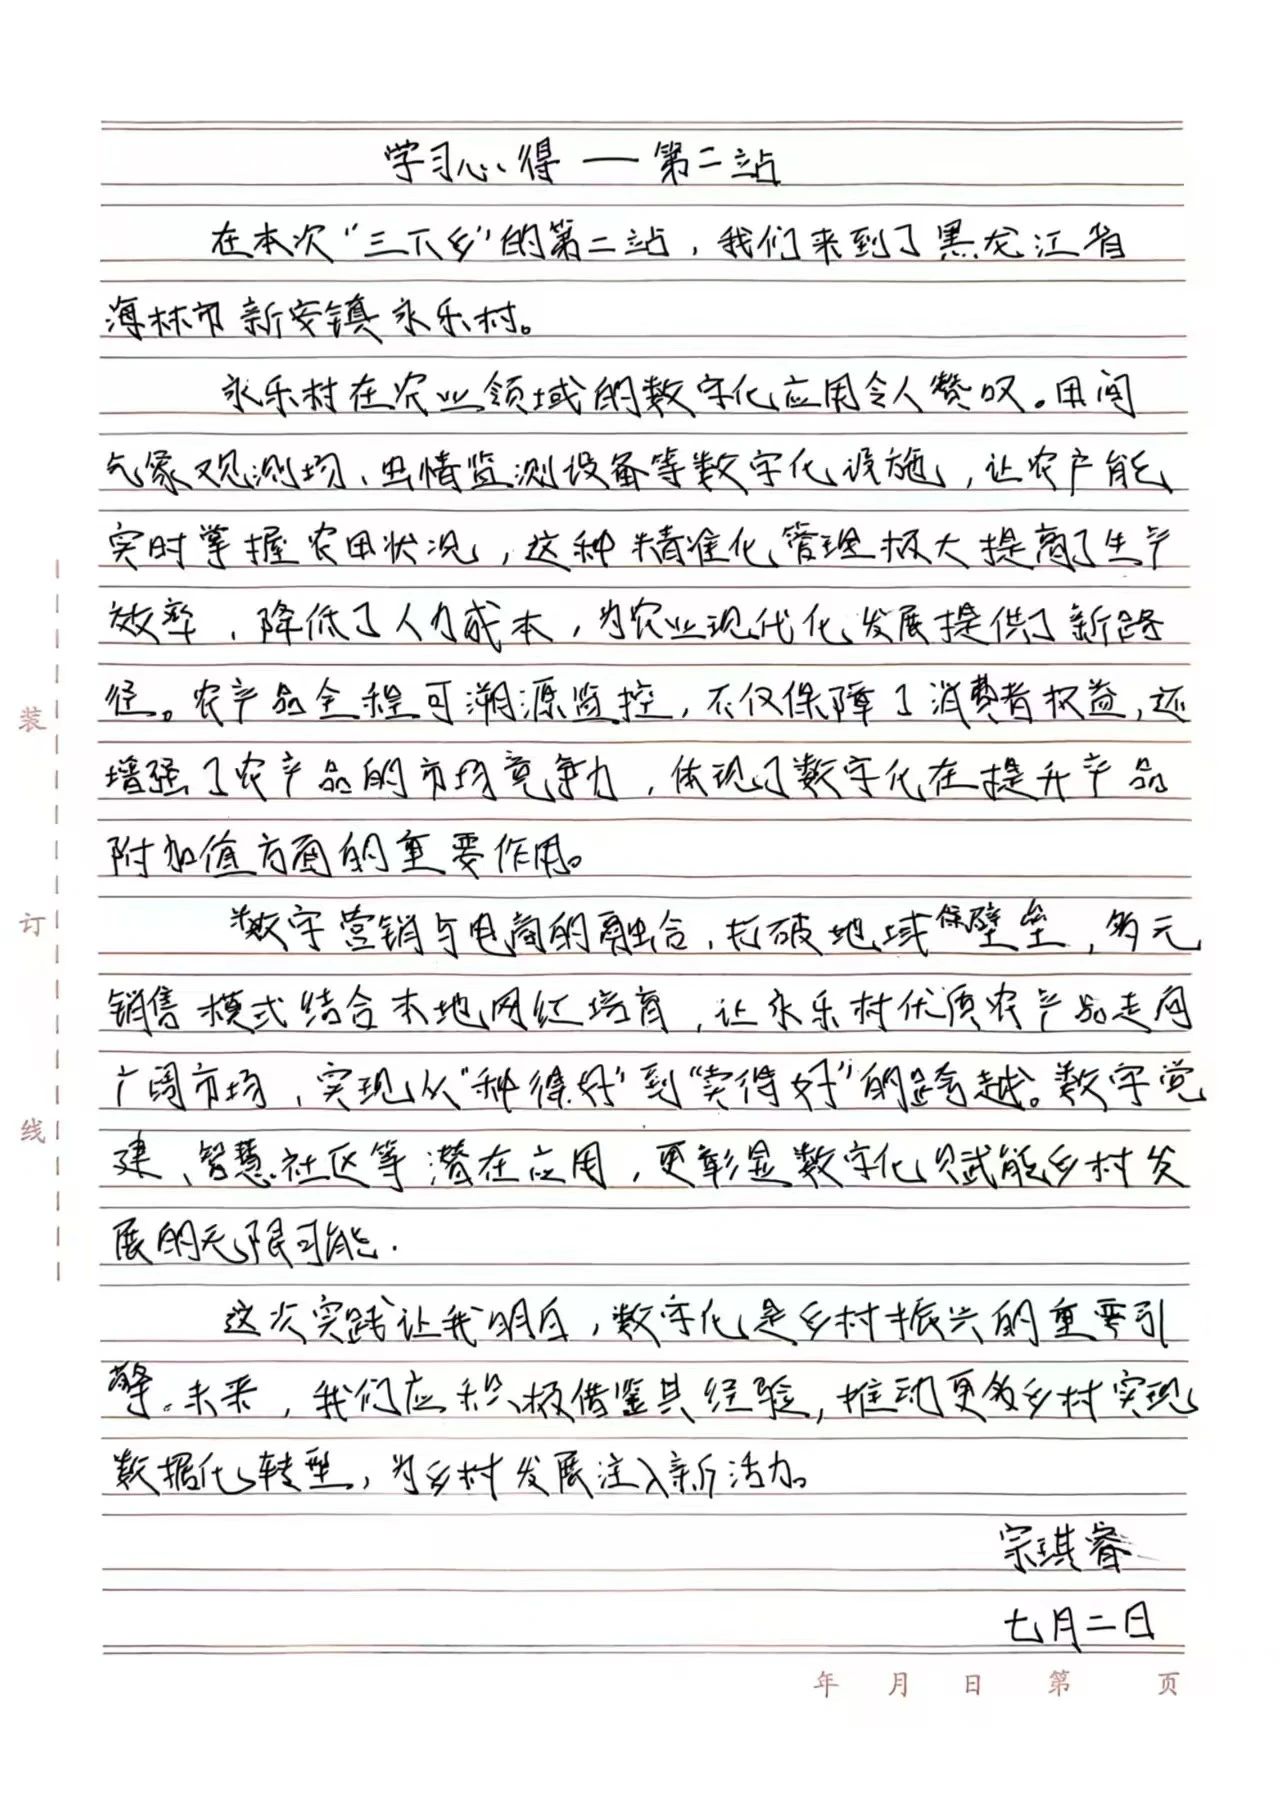 学习心得——第二站
在本次“三下乡”的第二站，我们来到了黑龙江省
海林市新安镇永乐村。
永乐村在农业领域的数字化应用令人赞叹。田间
气象观测场、虫情监测设备等数字化设施，让农户能
实时掌握农田状况，这种精准化管理极大提高了生产
效率，降低了人力成本，为农业现代化发展提供了新路
径。农产品全程可溯源监控，不仅保障了消费者权益，还
增强了农产品的市场竞争力，体现了数字化在提升产品
附加值方面的重要作用。
数字营销与电商的融合，打破地域保壁垒，多元
销售模式结合本地网红培育，让永乐村优质农产品走向
广阔市场，实现从“种得好”到“卖得好”的跨越。数字党
建、智慧社区等潜在应用，更彰显数字化赋能乡村发
展的无限可能.
这次实践让我明白，数字化是乡村振兴的重要引
擎。未来，我们应积极借鉴其经验，推动更多乡村实现
数据化转型，为乡村发展注入新活力。
宗琪睿
七月二日
装
订
线
年 月 日 第 页